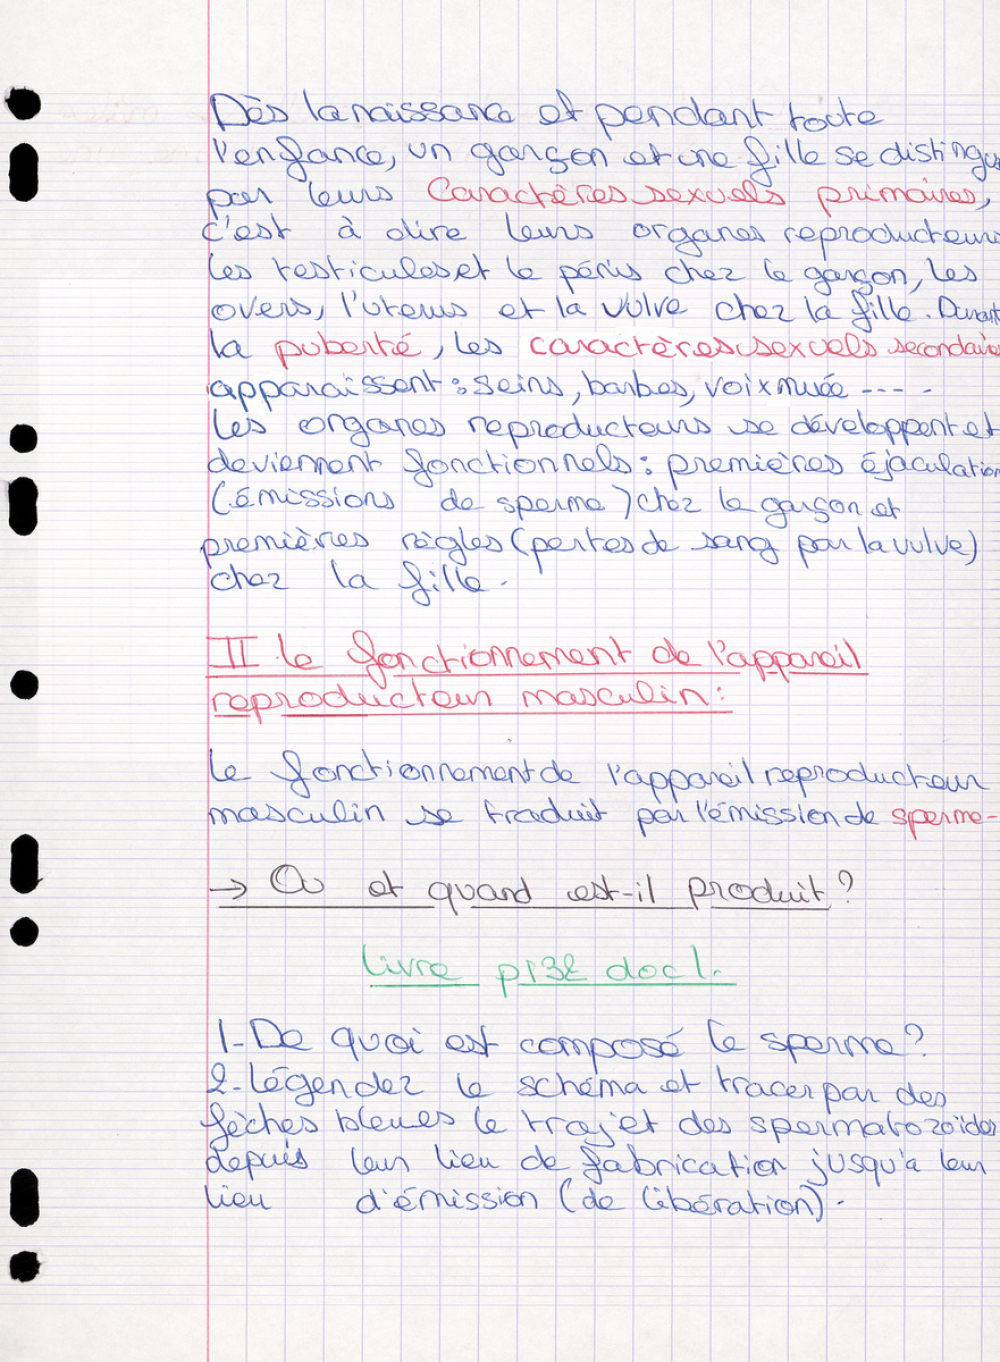 Dès la naissance et pendant toute
l'enfance, un garçon et une fille se distingue
par leurs Caractères sexuels primaires,
c'est à dire leurs organes reproducteurs
Les testicules et le pénis chez le garçon, les
overs, l'uterus et la vulve chez la fille. Durant
la puberté, les caractères sexuels secondaires
apparaissent : seins, barbes, voix muée ----
Les organes reproducteurs se développent et
deviennent fonctionnels : premières éjaculation
(émissions de sperme) chez le garçon et
premières règles (pertes de sang par la vulve)
chez la fille.
II le fonctionnement de l'appareil
reproducteur masculin :
Le fonctionnement de l'appareil reproducteur
masculin se traduit par l'émission de sperme-
→ Ou et quand est-il produit ?
Livre p132 doc 1.
1-De quoi est composé le sperme ?
2-Légendez le schéma et tracer par des
fèches bleues le trajet des spermatozoïdes
depuis leur lieu de fabrication jusqu'a leur
lieu d'émission (de libération).